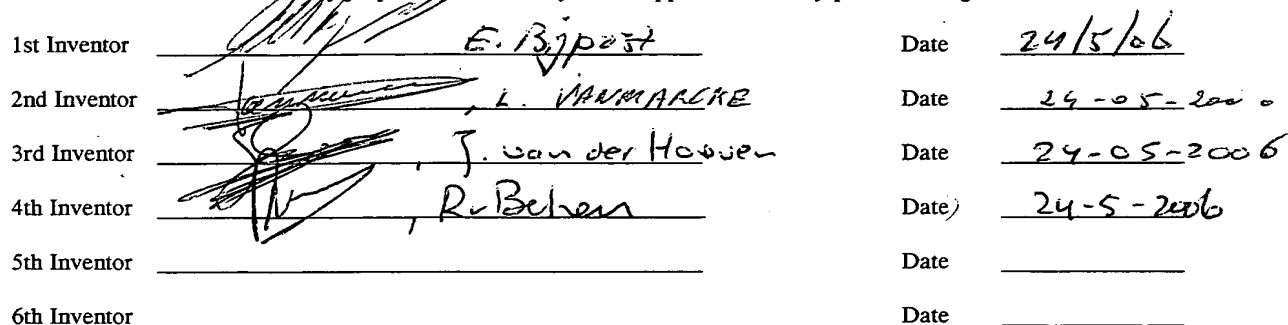 1st Inventor E. Bijpost Date 24/5/06
2nd Inventor , L. VANMARCKE Date 24-05-200
3rd Inventor , J. van der Hoeven Date 24-05-2006
4th Inventor , R. v Date) 24-5-2006
5th Inventor Date
6th Inventor Date